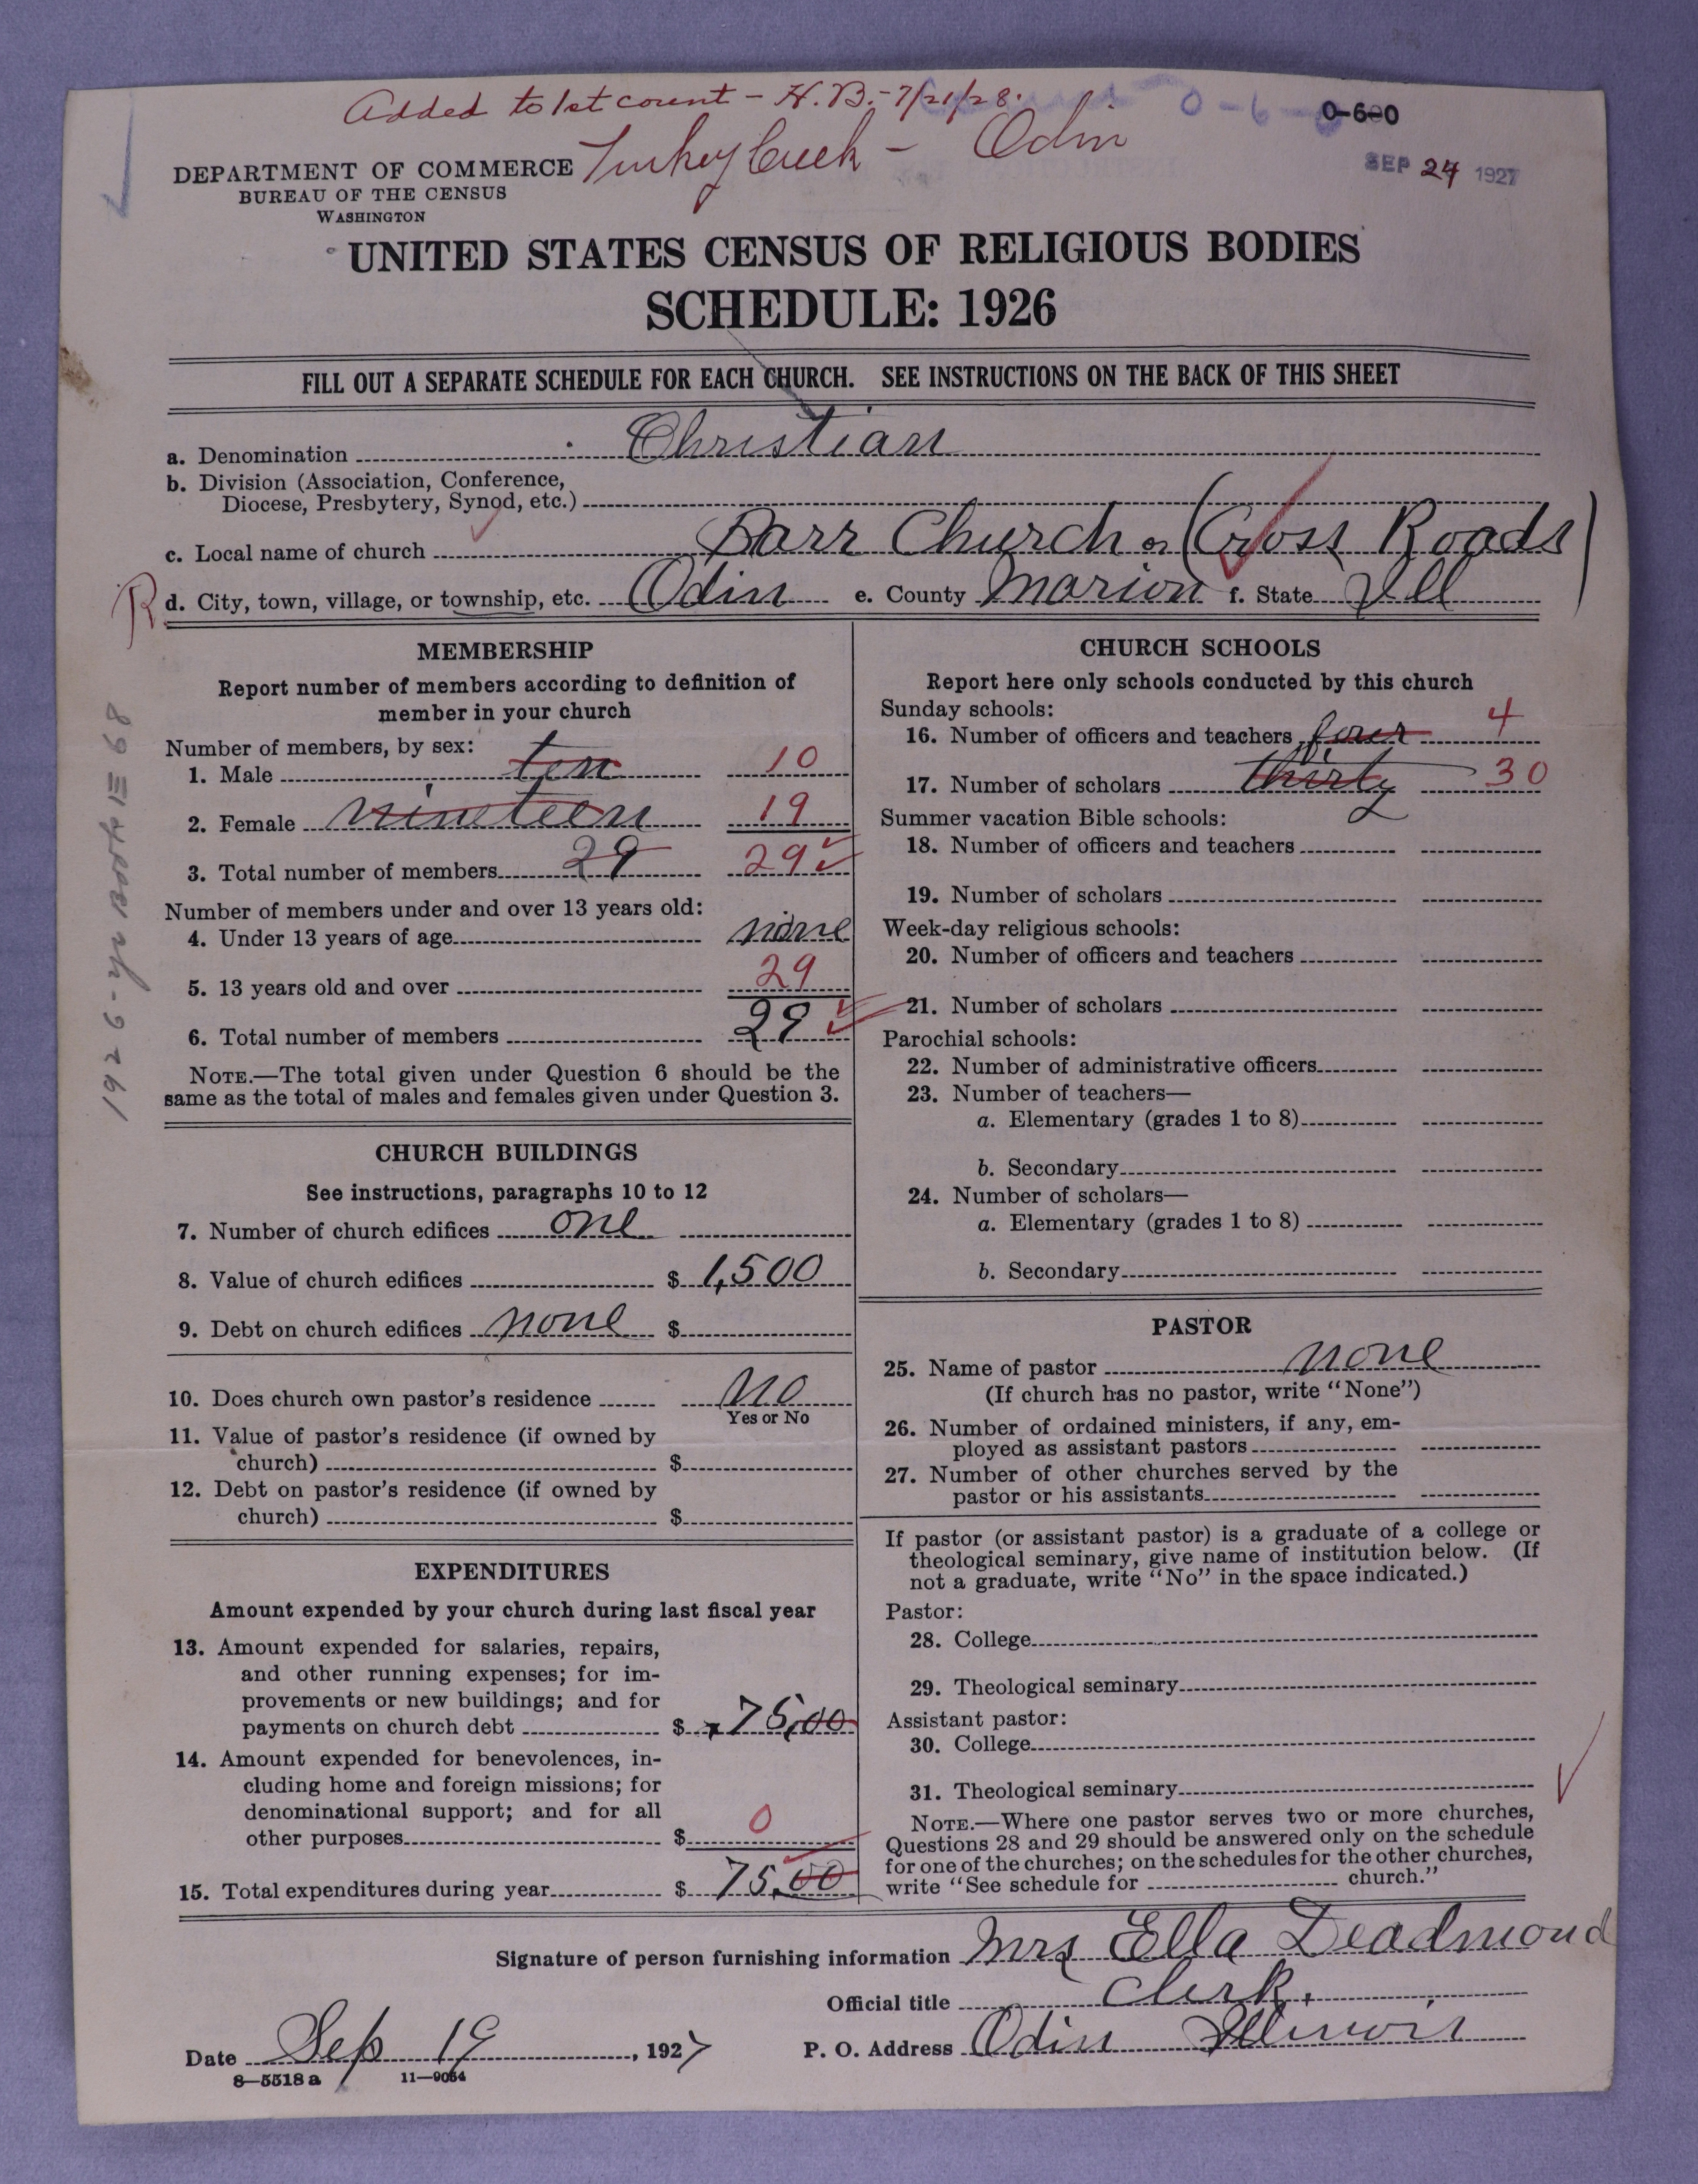 Added to 1st count - H.B. - 7/21/28.
0-6-0
Turkey Creek - Odin
SEP 24 1927
DEPARTMENT OF COMMERCE
BUREAU OF THE CENSUS
WASHINGTON
UNITED STATES CENSUS OF RELIGIOUS BODIES
SCHEDULE: 1926
FILL OUT A SEPARATE SCHEDULE FOR EACH CHURCH. SEE INSTRUCTIONS ON THE BACK OF THIS SHEET
a. Denomination Christian
b. Division (Association, Conference,
Diocese, Presbytery, Synod, etc.)
c. Local name of church Barr Church or (Cross Roads)
R d. City, town, village, or township, etc. Odin e. County Marion f. State Ill
MEMBERSHIP
Report number of members according to definition of
member in your church
Number of members, by sex:
1. Male ten 10
2. Female nineteen 19
3. Total number of members 29 29
Number of members under and over 13 years old:
4. Under 13 years of age none
5. 13 years old and over 29
6. Total number of members 29
NOTE.—The total given under Question 6 should be the
same as the total of males and females given under Question 3.
CHURCH BUILDINGS
See instructions, paragraphs 10 to 12
7. Number of church edifices one
8. Value of church edifices $ 1,500
9. Debt on church edifices none $
10. Does church own pastor's residence No
Yes or No
11. Value of pastor's residence (if owned by
church) $
12. Debt on pastor's residence (if owned by
church) $
EXPENDITURES
Amount expended by your church during last fiscal year
13. Amount expended for salaries, repairs,
and other running expenses; for im-
provements or new buildings; and for
payments on church debt $ 75,00
14. Amount expended for benevolences, in-
cluding home and foreign missions; for
denominational support; and for all
other purposes $ 0
15. Total expenditures during year $ 75.00
CHURCH SCHOOLS
Report here only schools conducted by this church
Sunday schools:
16. Number of officers and teachers four 4
17. Number of scholars thirty 30
Summer vacation Bible schools:
18. Number of officers and teachers
19. Number of scholars
Week-day religious schools:
20. Number of officers and teachers
21. Number of scholars
Parochial schools:
22. Number of administrative officers
23. Number of teachers—
a. Elementary (grades 1 to 8)
b. Secondary
24. Number of scholars—
a. Elementary (grades 1 to 8)
b. Secondary
PASTOR
25. Name of pastor none
(If church has no pastor, write "None")
26. Number of ordained ministers, if any, em-
ployed as assistant pastors
27. Number of other churches served by the
pastor or his assistants
If pastor (or assistant pastor) is a graduate of a college or
theological seminary, give name of institution below. (If
not a graduate, write "No" in the space indicated.)
Pastor:
28. College
29. Theological seminary
Assistant pastor:
30. College
31. Theological seminary
NOTE.—Where one pastor serves two or more churches,
Questions 28 and 29 should be answered only on the schedule
for one of the churches; on the schedules for the other churches,
write "See schedule for church."
Signature of person furnishing information Mrs Ella Deadmond
Official title Clerk.
Date Sep 19, 1927
P. O. Address Odin Illinois
8—5518 a 11—9054
1926 - yr Book III 68